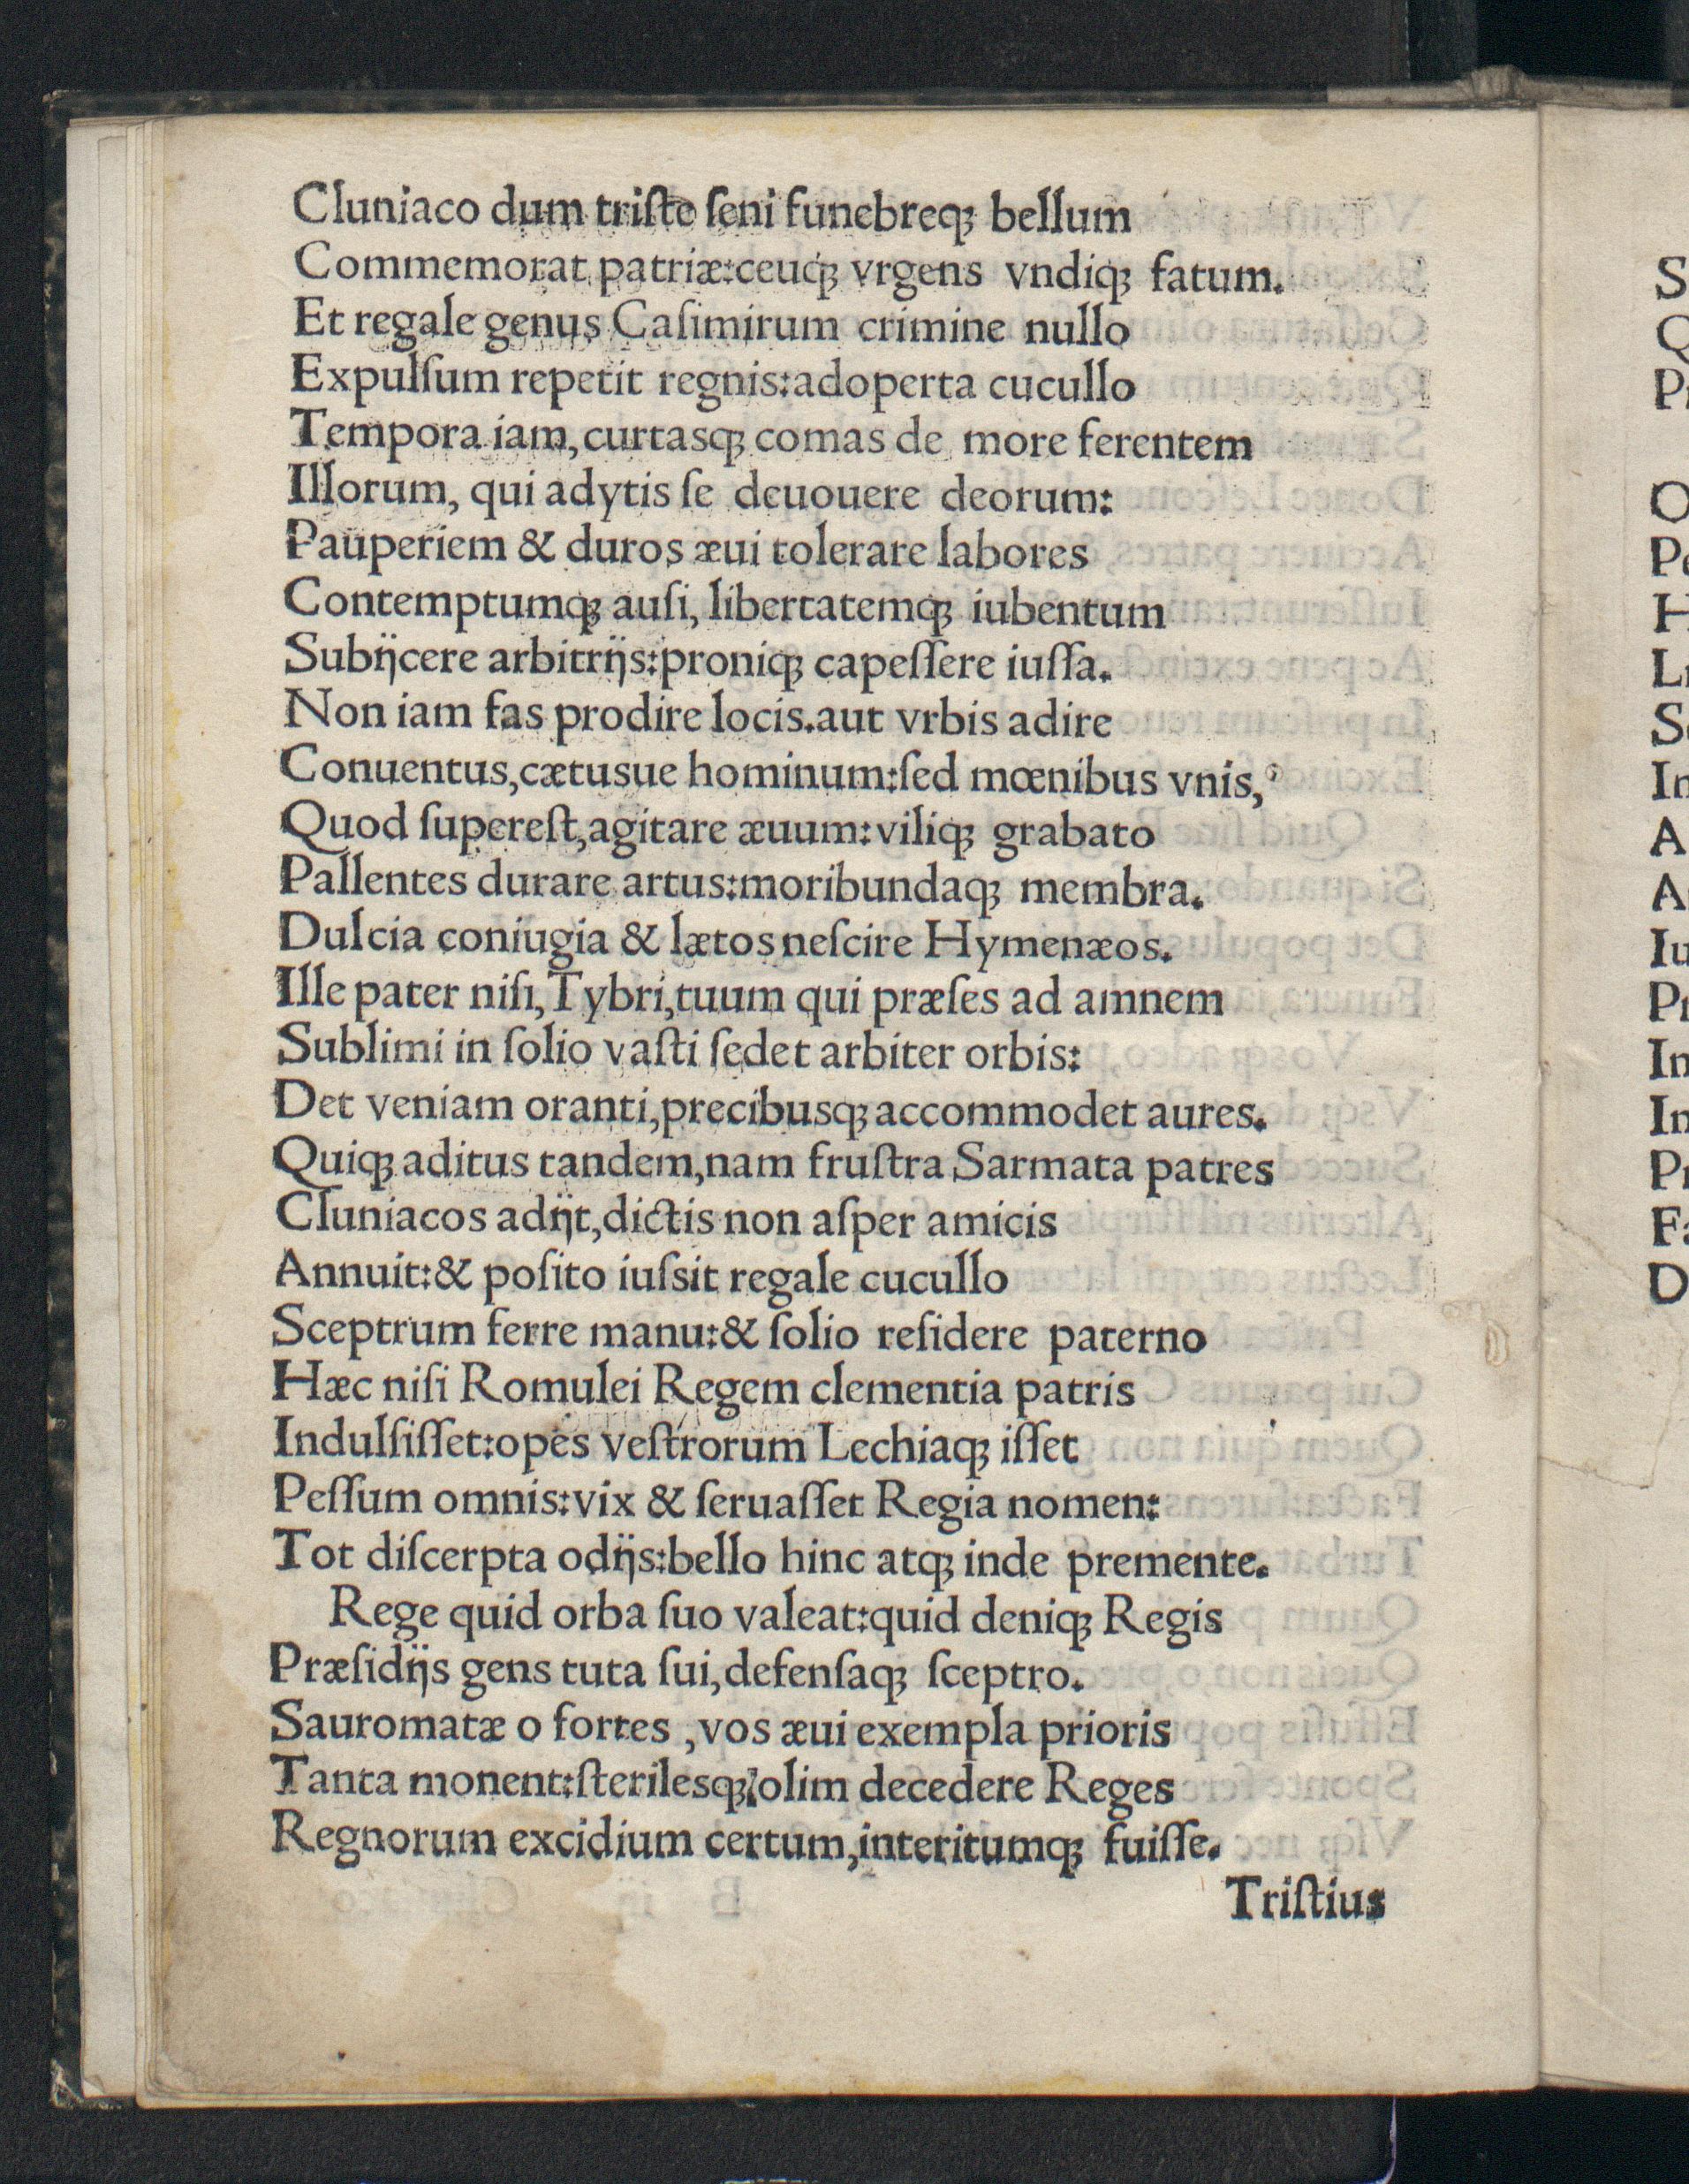 Cluniaco dum triſte ſeni funebreqꝫ bellum
Commemorat patriæ:ceuqꝫ vrgens vndiqꝫ fatum.
Et regale genus Caſimirum crimine nullo
Expulſum repetit regnis:adoperta cucullo
Tempora iam,curtasqꝫ comas de more ferentem
Illorum, qui adytis ſe deuouere deorum:
Pauperiem & duros æui tolerare labores
Contemptumqꝫ auſi, libertatemqꝫ iubentum
Subĳcere arbitrĳs:proniqꝫ capeſſere iuſſa.
Non iam fas prodire locis.aut vrbis adire
Conuentus,cætusue hominum:ſed mœnibus vnis,
Quod ſupereſt,agitare æuum:viliqꝫ grabato
Pallentes durare artus:moribundaqꝫ membra.
Dulcia coniugia & lætos neſcire Hymenæos.
Ille pater niſi,Tybri,tuum qui præſes ad amnem
Sublimi in ſolio vaſti ſedet arbiter orbis:
Det veniam oranti,precibusqꝫ accommodet aures.
Quiqꝫ aditus tandem,nam fruſtra Sarmata patres
Cluniacos adĳt,dictis non aſper amicis
Annuit:& poſito iuſsit regale cucullo
Sceptrum ferre manu:& ſolio reſidere paterno
Hæc niſi Romulei Regem clementia patris
Indulſiſſet:opes veſtrorum Lechiaqꝫ iſſet
Peſſum omnis:vix & ſeruaſſet Regia nomen:
Tot diſcerpta odĳs:bello hinc atqꝫ inde premente.
Rege quid orba ſuo valeat:quid deniqꝫ Regis
Præſidĳs gens tuta ſui,defenſaqꝫ ſceptro.
Sauromatæ o fortes ,vos æui exempla prioris
Tanta monent:ſterilesqꝫ olim decedere Reges
Regnorum excidium certum,interitumqꝫ fuiſſe.
Triſtius
S
Q
Pr
O
Pe
H
Li
Se
In
A
A
Iu
Pr
In
In
Pr
Fa
D